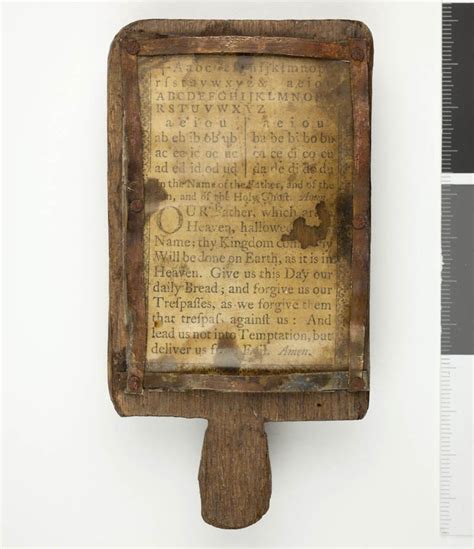 Aabcde fghijklmnopq
rſstuvwxyz & aeiou
ABCDEFGHIJKLMNOPQ
RSTUVWXYZ
a e i o u a e i o u
ab eb ib ob ub ba be bi bo bu
ac ec ic oc uc ca ce ci co cu
ad ed id od ud da de di do du
In the Name of the Father, and of the
Son, and of the Holy Ghost. Amen.
OUR Father, which art
Heaven, hallowed
Name; thy Kingdom come
Will be done on Earth, as it is in
Heaven. Give us this Day our
daily Bread; and forgive us our
Treſpaſſes, as we forgive them
that treſpaſs againſt us: And
lead us not into Temptation, but
deliver us from Evil. Amen.